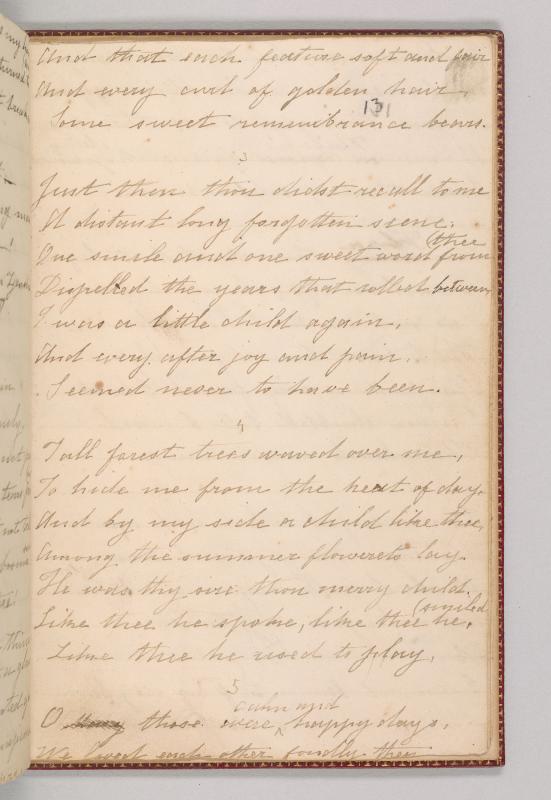 And that each feature soft and fair
And every curl of golden hair,
131
Some sweet remembrance bears.
3
Just then thou didst recall to me
A distant long forgotten scene.
One smile and one sweet word from thee
Dispelled the years that rolled between,
I was a little child again,
And every after joy and pain,
Seemed never to have been.
4
Tall forest trees waved over me,
To hide me from the heat of day,
And by my side a child like thee,
Among the summer flowerets lay.
He was thy sire thou merry child.
Like thee he spoke, like thee he smiled,
Like thee he used to play,
5
O those were calm and happy days,
We loved each other fondly then